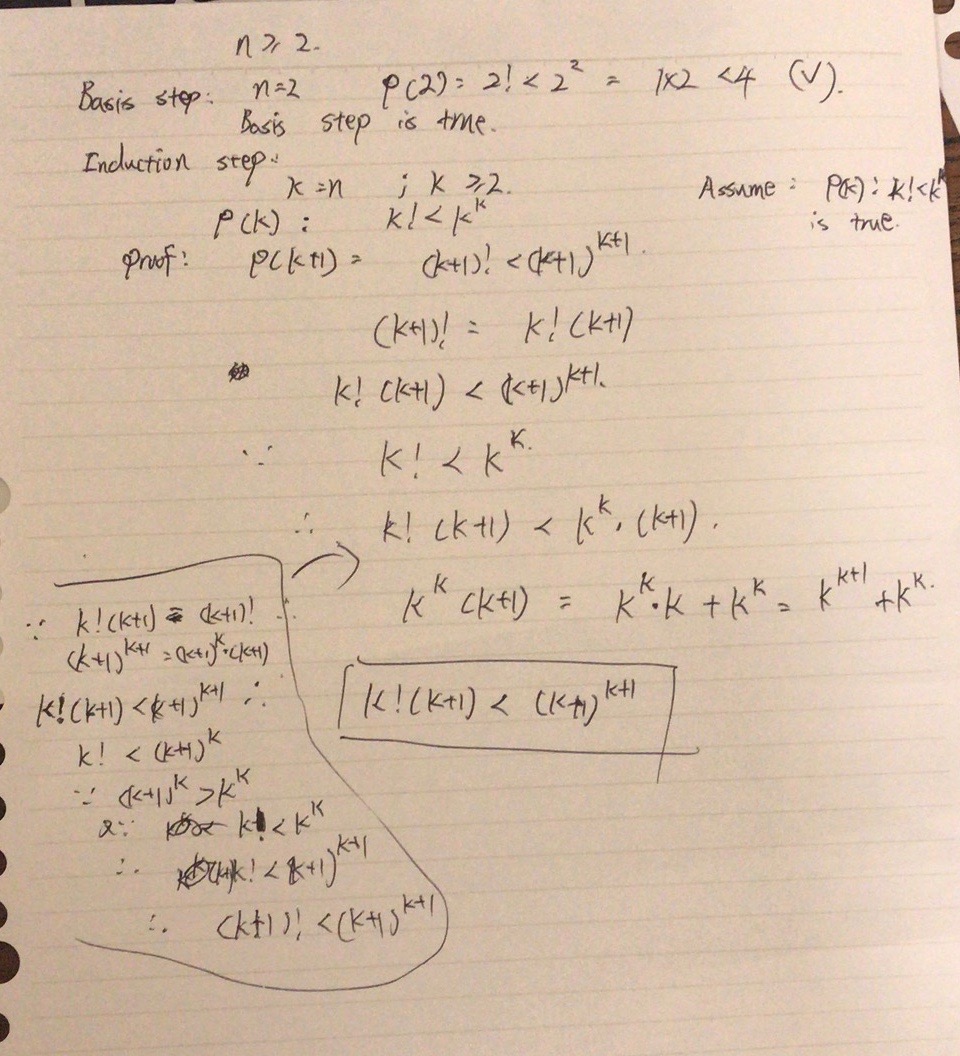 n ≥ 2.
Basis step: n=2 P(2) = 2! < 2² = 1×2 < 4 (√).
Basis step is true.
Induction step:
k = n ; k ≥ 2. Assume : P(k) : k! < k^k
P(k) : k! < k^k is true.
Proof: P(k+1) = (k+1)! < (k+1)^{k+1}.
(k+1)! = k! (k+1)
k! (k+1) < (k+1)^{k+1}.
∵ k! < k^k.
∴ k! (k+1) < k^k · (k+1).
k^k (k+1) = k^k · k + k^k = k^{k+1} + k^k.
k! (k+1) < (k+1)^{k+1}
∵ k! (k+1) = (k+1)! ∴
(k+1)^{k+1} = (k+1)^k · (k+1)
k! (k+1) < (k+1)^{k+1} ∴
k! < (k+1)^k
∵ (k+1)^k > k^k
∵ k! < k^k
∴ k! < (k+1)^{k+1}
∴ (k+1)! < (k+1)^{k+1}